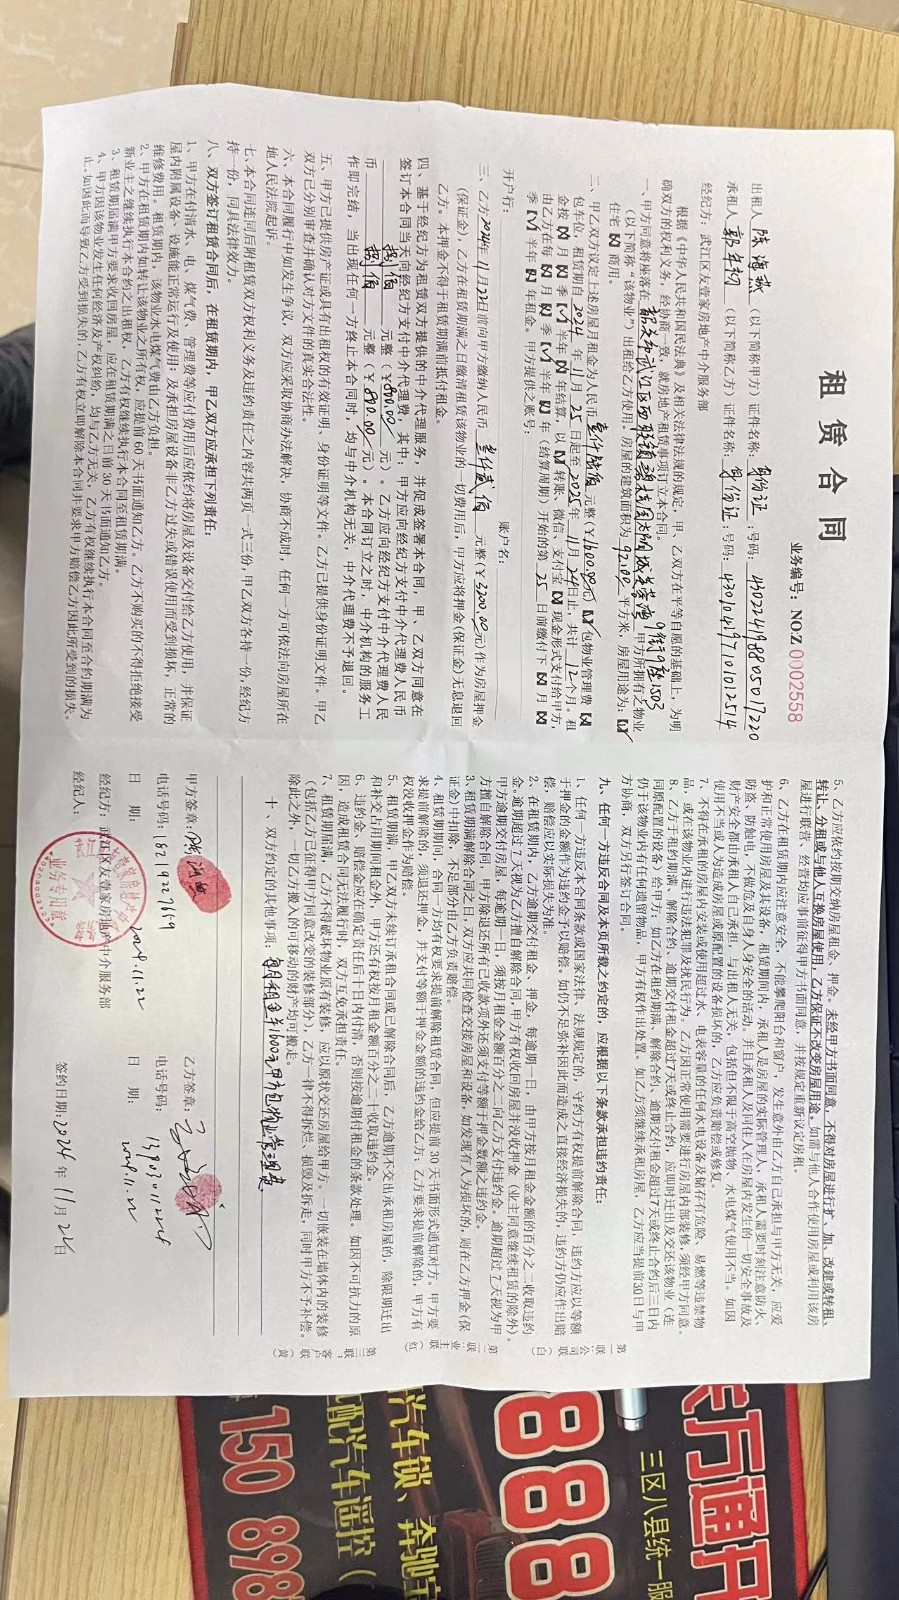 租 赁 合 同
业务编号：NO:Z 0002558
出租人 陈海燕 （以下简称甲方）证件名称：身份证 ：号码：440224198805017220
承租人 （以下简称乙方）证件名称：身份证 ：号码：430104197101012514
经纪方：武江区友萱家房地产中介服务部
根据《中华人民共和国民法典》及相关法律法规的规定，甲、乙双方在平等自愿的基础上，为明
确双方的权利义务，经协商一致，就房屋租赁事项订立本合同。
一、甲方同意将座落在 韶关市武江区西联镇碧桂园太阳城 9街9座1503 甲方所拥有之物业
（以下简称“该物业”）出租给乙方使用。房屋的建筑面积为 平方米，房屋用途为：【√】
住宅【×】商用。
二、甲乙双方议定上述房屋月租金为人民币 壹仟陆佰 元整（￥1600.00元）【√】包物业管理费【×】
包车位。租赁期自2024 年 11月 25 日起至 2025年 11月 24日止，共计 12 个月。租
金按【×】月【×】季【√】半年【×】年结算，以【√】转账、微信、支付宝【×】现金形式支付给甲方，
由乙方在每【×】月【×】季【√】半年【×】年（结算周期）开始的第 25 日前缴付下【×】月【×】
季【√】半年【×】年租金。甲方提供之账号：
开户行： 账户名：
三、乙方2024年 11月22日前向甲方缴纳人民币 元整（￥3200.00元）作为房屋押金
（保证金），乙方在租赁期满之日缴清租赁该物业的一切费用后，甲方应将押金（保证金）无息退回
乙方。本押金不得于租赁期满前抵付租金。
四、基于经纪方为租赁双方提供的中介代理服务，并促成签署本合同，甲、乙双方同意在
签订本合同当天向经纪方支付中介代理费，其中：甲方应向经纪方支付中介代理费人民币
捌佰 元整（￥800.00元）。乙方应向经纪方支付中介代理费人民
币 捌佰 元整（￥800.00元）。本合同订立之时，中介机构的服务工
作即完结，当出现任何一方终止本合同时，均与中介机构无关，中介代理费不予退回。
五、甲方已提供房产证或具有出租权的有效证明、身份证明等文件。乙方已提供身份证明文件。甲乙
双方已分别审查并确认对方文件的真实合法性。
六、本合同履行中如发生争议，双方应采取协商办法解决，协商不成时，任何一方可依法向房屋所在
地人民法院起诉。
七、本合同连同后附租赁双方权利义务及违约责任之内容共两页一式三份，甲乙双方各持一份，经纪方
持一份，同具法律效力。
八、双方签订租赁合同后，在租赁期内，甲乙双方应承担下列责任：
1、甲方在付清水、电、煤气费、管理费等应付费用后应依约将房屋及设备交付给乙方使用，并保证
屋内附属设备、设施能正常运行及使用；及承担房屋设备非乙方过失或错误使用而受到损坏，正常的
维修费用。租赁期内，该物业水电煤气费由乙方负担。
2、甲方在租赁期内如转让该物业之所有权，应提前 60 天书面通知乙方。乙方不购买的不得拒绝接受
新业主之继续执行本合约之出租权，乙方有权继续执行本合同至租赁期满。
3、租赁期届满甲方要求收回房屋，应在租赁期满之日前 30 天书面通知乙方。
4、甲方因该物业发生任何经济及产权纠纷，均与乙方无关，乙方有权继续执行本合同至合约期满为
止。如因此而导致乙方受到损失的，乙方有权立即解除本合同并要求甲方赔偿乙方因此所受到的损失。
5、乙方应依约按期交纳房屋租金，押金。未经甲方书面同意，不得对房屋进行扩、加、改建或转租、
转让、分租或与他人互换房屋使用，乙方保证不改变房屋用途，如需与他人合作使用房屋或利用该房
屋进行联营、经营均应事前征得甲方书面同意，并按规定重新议定房租。
6、乙方在租赁期内应注意安全，不能攀爬阳台和窗户，发生意外由乙方自己承担与甲方无关，应爱
护和正常使用房屋及其设备，租赁期间内，承租人是房屋的实际管理人，承租人需要时刻注意防火、
防盗、防触电，不做危及自身人身安全的活动。并且承租人及同住人在房屋内发生的一切安全事故及
财产安全都由承租人自己承担，与出租人无关。包括但不限于高空抛物，水电煤气使用不当。如因
使用不当或人为造成房屋或原配置的设备损坏的，乙方应负责赔偿或修复。
7、不得在承租的房屋内安装或使用超过水、电表容量的任何水电设备及储存有危险、易燃等违禁物
品，或在该物业内进行违法犯罪及扰民行为。乙方因正常使用需要进行房屋内部装修，须经甲方同意。
8、乙方于租约期满、解除合约、逾期交付租金超过7天或终止合约时，应即时迁出及交还该物业（连
同原配置的设备）给甲方；如乙方在租约期满、解除合约、逾期交付租金超过7天或终止合约后三日内
仍于该物业内有任何遗留物品，甲方有权作出处置。如乙方须继续承租房屋，乙方应当提前30日与甲
方协商，双方另行签订合同。
九、任何一方违反合同及本项所载之约定的，应根据以下条款承担违约责任：
1、任何一方违反本合同条款或国家法律、法规规定的，守约方有权提前解除合同，违约方应以等额
于押金的金额作为违约金予以赔偿。如仍不足弥补因此而造成之直接经济损失的，违约方仍应作出赔
偿，赔偿应以实际损失为准。
2、在租赁期内，乙方逾期交付租金，押金，每逾期一日，由甲方按月租金金额的百分之二收取违约
金。逾期超过7天视为乙方擅自解除合同，甲方有权收回房屋并没收押金（业主同意继续租赁的除外）。
甲方逾期交付房屋，每逾期一日，须按月租金金额百分之二向乙方支付违约金。逾期超过7天视为甲
方擅自解除合同，甲方除退还所有已收款项外还须支付等额于押金数额之违约金。
3、租赁期满解除合同之日，双方应共同检查交接房屋和设备，如发现有人为损坏的，则在乙方押金（保
证金）中扣除，不足部分由乙方负责赔偿。
4、租赁期期间，合同一方均有权要求提前解除租赁合同，但应提前 30 天书面形式通知对方，甲方要
求提前解除的，须退还押金，并支付等额于押金金额的违约金给乙方；乙方要求提前解除的，甲方有
权没收押金作为赔偿。
5、租赁期满，甲乙双方未续订承租合同或已解除合同后，乙方逾期不交出承租房屋的，除限期迁出
和补交占用期间租金外，甲方还有权按月租金额百分之二收取违约金。
6、违约金、赔偿金应在确定责任后十日内付清，否则按逾期付租金的条款处理。如因不可抗力的原
因，造成租赁合同无法履行时，双方互免承担责任。
7、租赁期届满，乙方不得破坏物业原有装修，应以原状交还房屋给甲方。一切嵌装在墙体内的装修
（包括乙方已征得甲方同意改变的装修部分），乙方一律不得拆拦、损毁及拆走，同时甲方不予补偿。
除此之外，一切乙方搬入的可移动的财产均可搬走。
十、双方约定的其他事项：每月租金1600元甲方包物业管理费
甲方签章：陈海燕 乙方签章：
电话号码：18219227859 电话号码：
日 期：2024.11.22 日 期：2024.11.22
经纪方：武江区友萱家房地产中介服务部
经纪人： 签约日期：2024 年 11月 22日
业务专用章
第一联 公司（白
第二联 业主（红
第三联 客户（黄
三区八县统一服
888
汽车锁、奔驰
配汽车遥控（
150 898